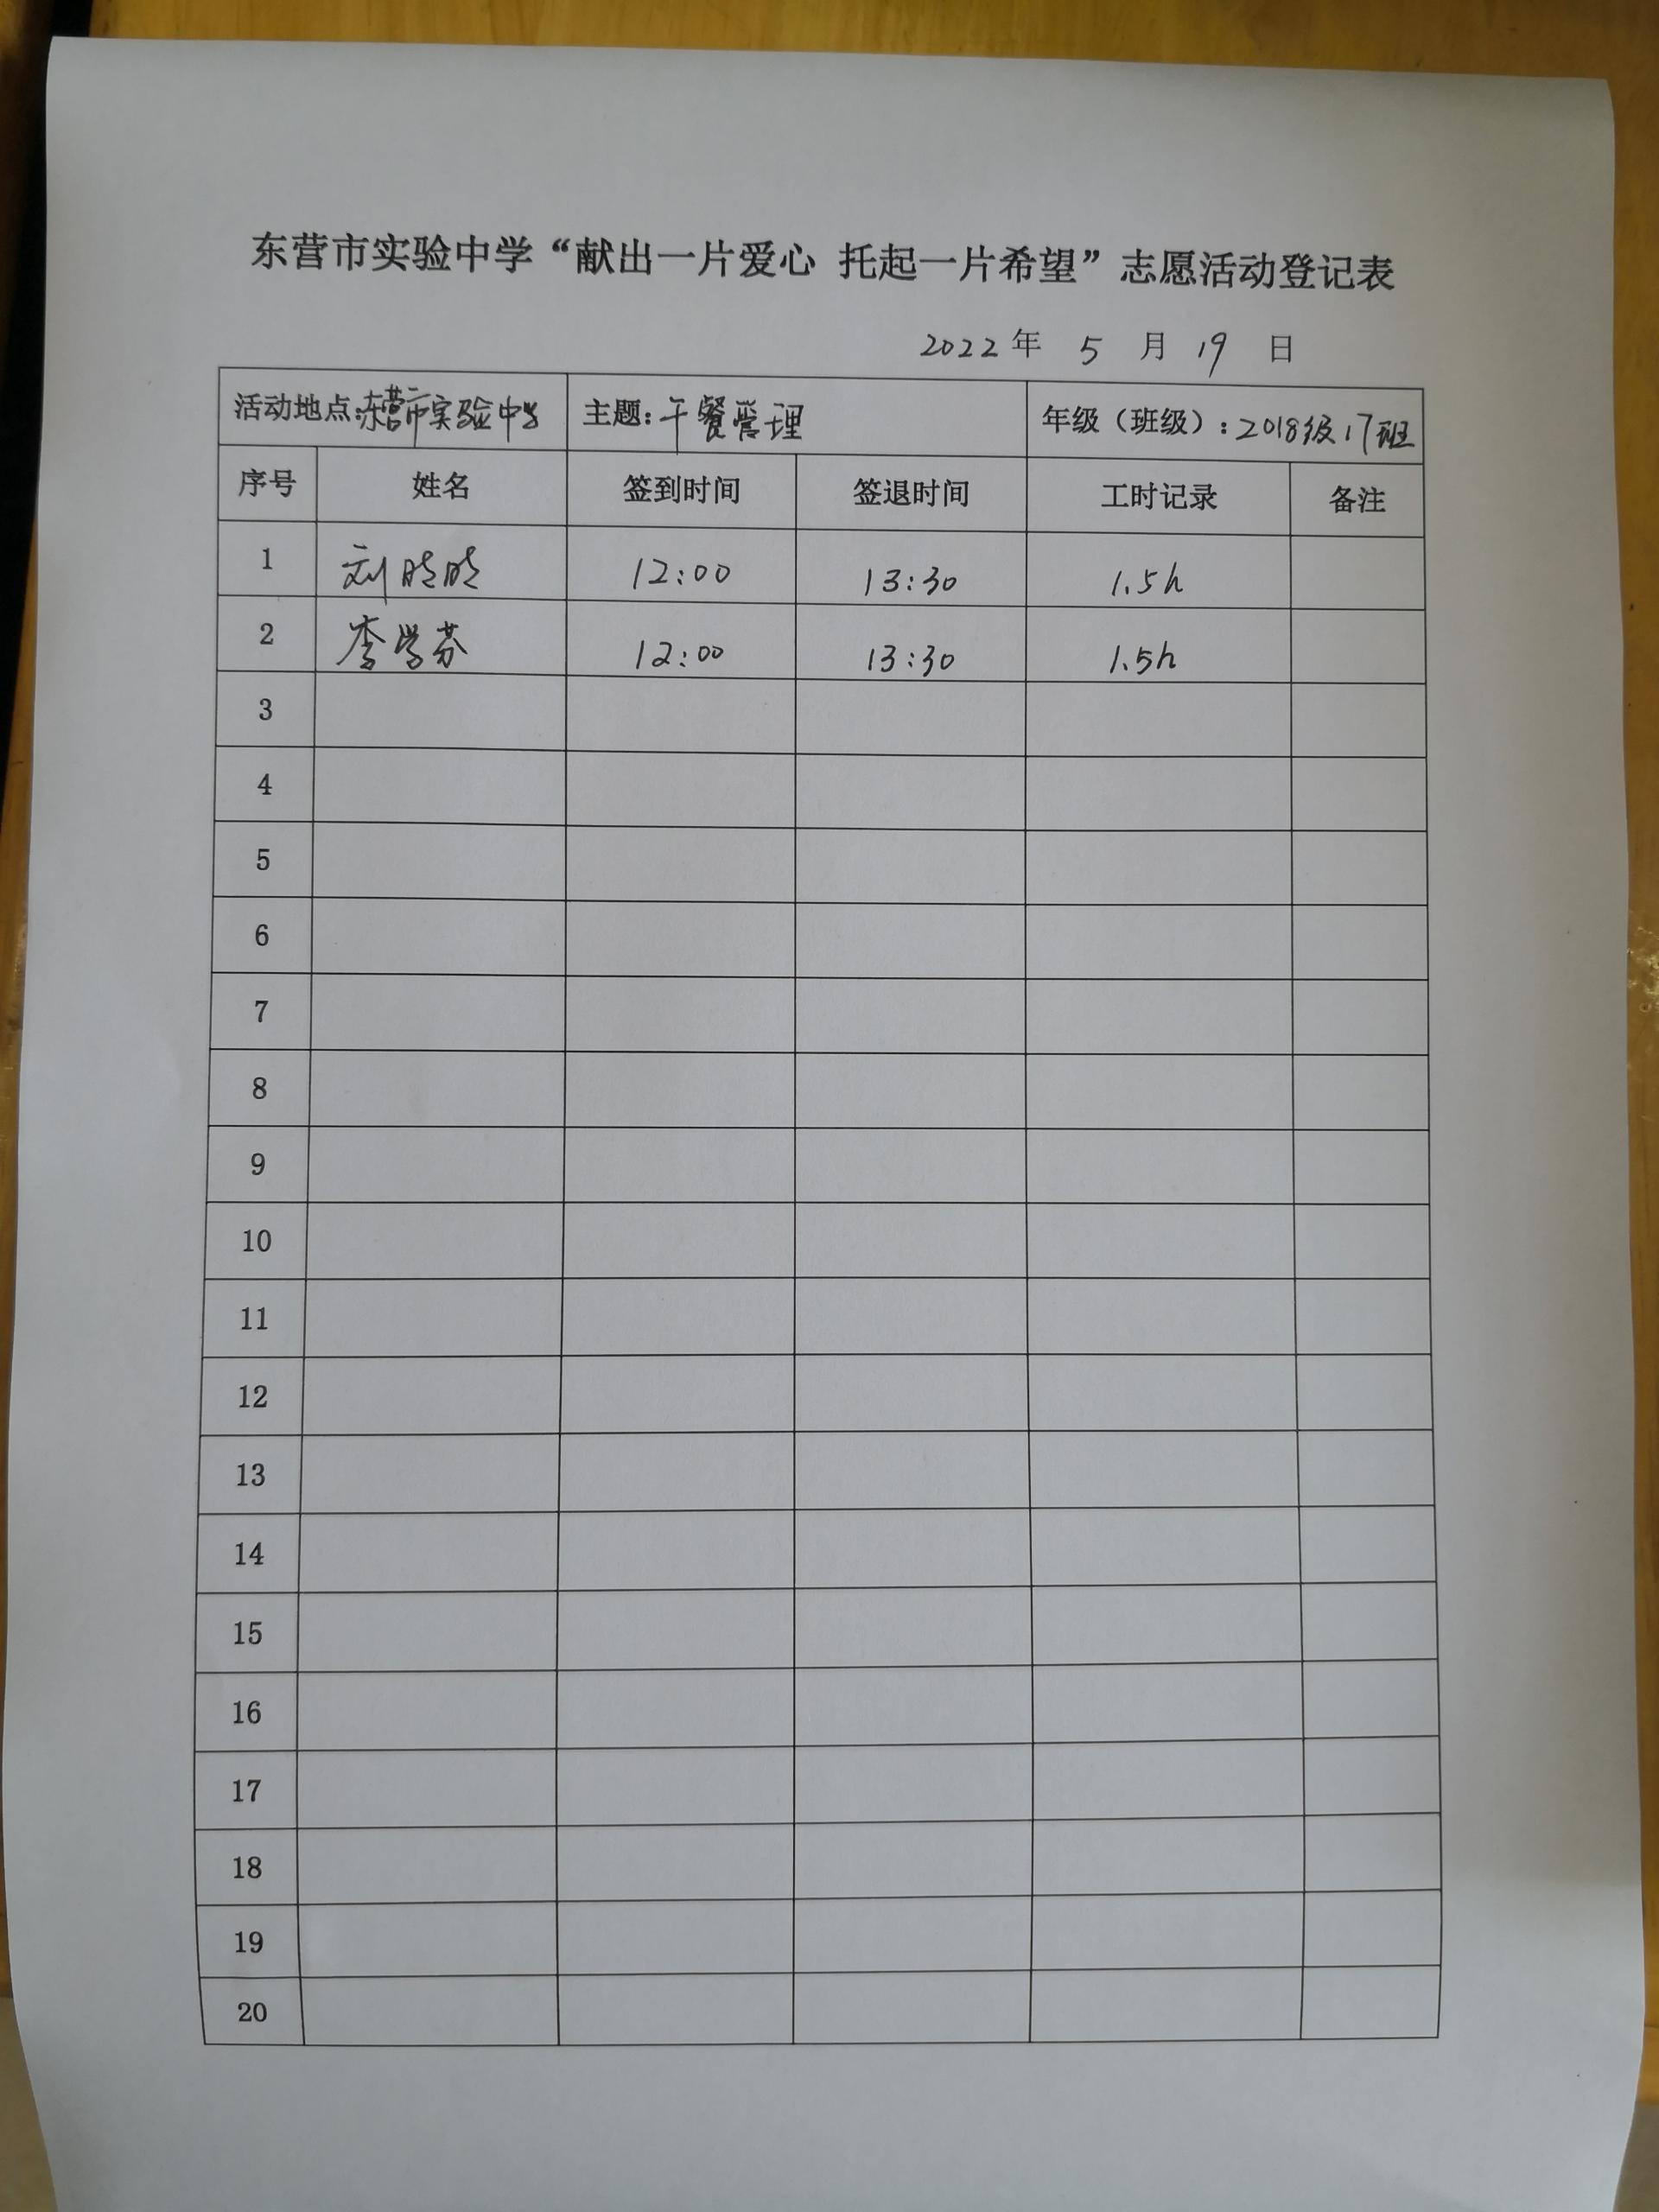 东营市实验中学“献出一片爱心 托起一片希望”志愿活动登记表
2022年 5 月 19 日
活动地点:东营市实验中学 主题:午餐管理 年级（班级）:2018级17班
序号 姓名 签到时间 签退时间 工时记录 备注
1 刘晓晓 12:00 13:30 1.5h
2 李学芬 12:00 13:30 1.5h
3
4
5
6
7
8
9
10
11
12
13
14
15
16
17
18
19
20